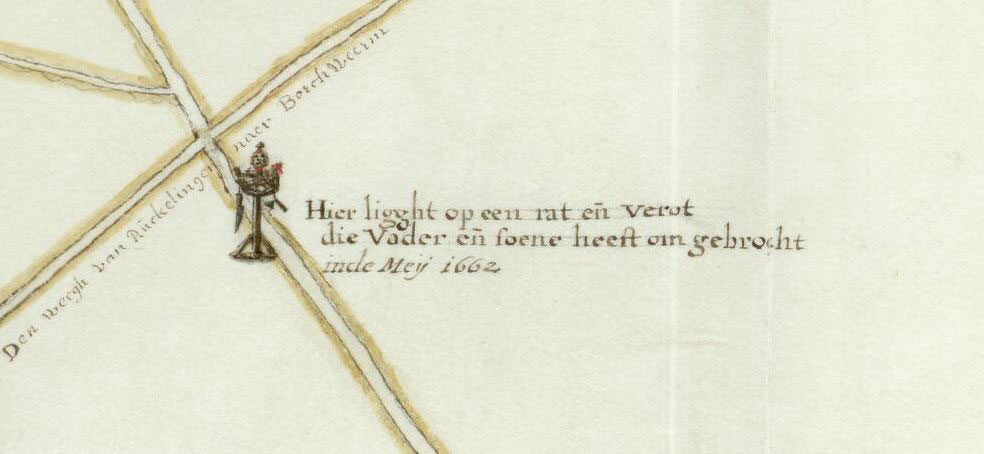 Den weegh van Rückelingen naer Borchweerm
Hier ligght op een rat eñ verot
die Vader eñ soene heeft om gebrocht
inde Meij 1662